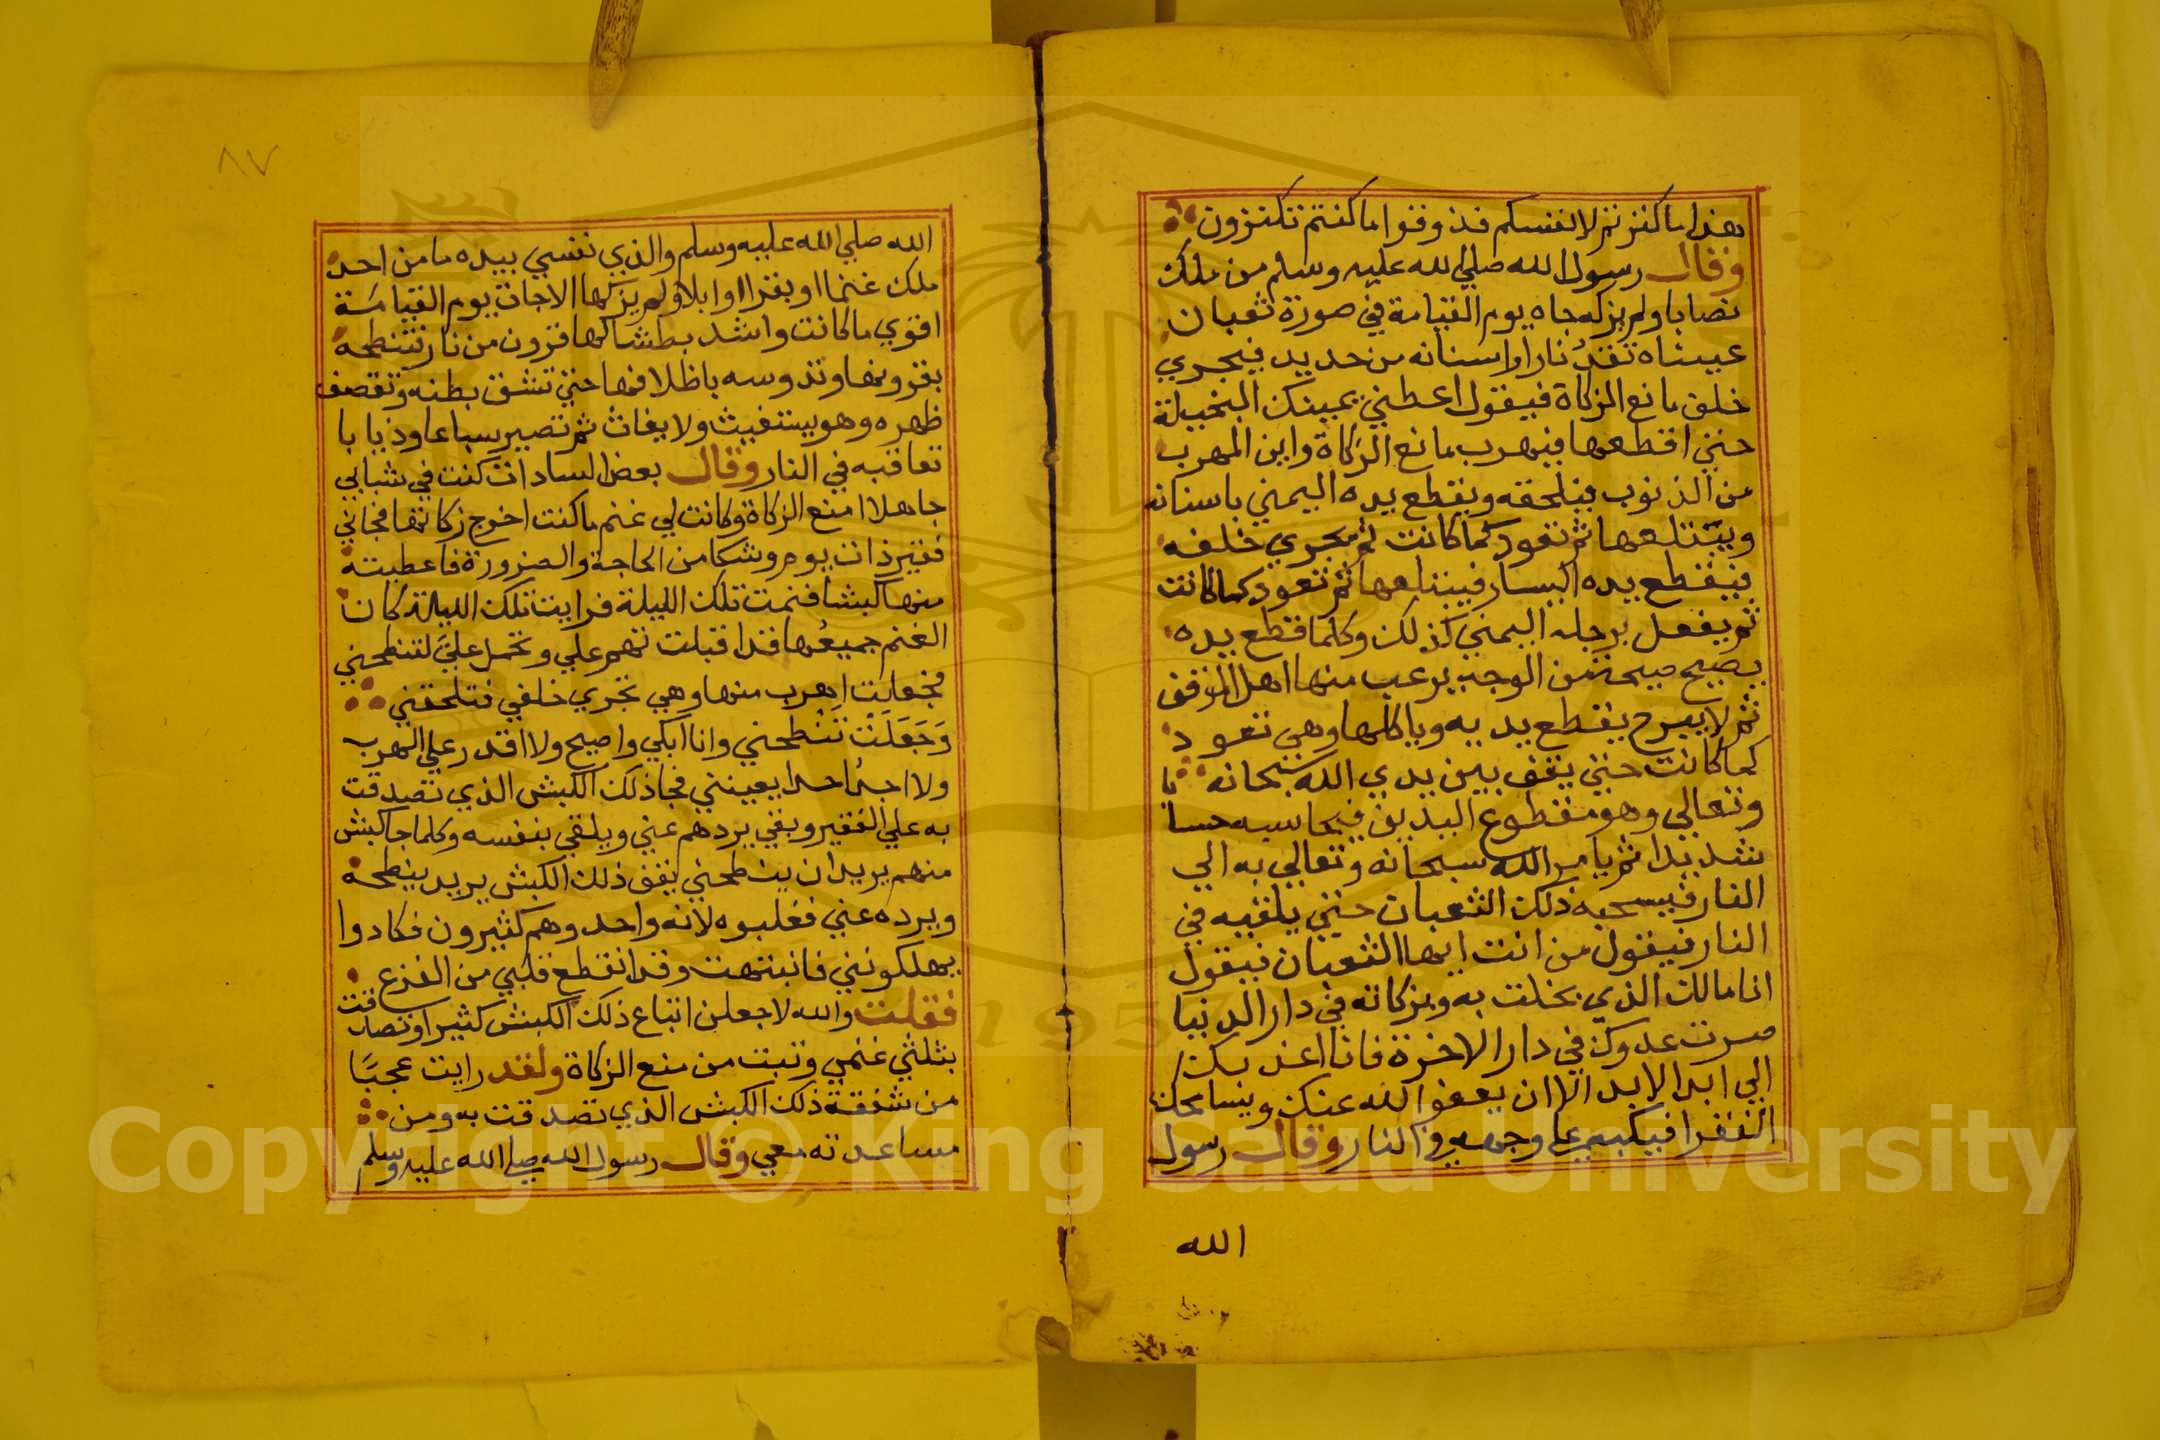 هذا ما كنزتم لانفسكم فذوقوا ما كنتم تكنزون
وقال رسول الله صلي الله عليه وسلم من ملك
نصابا ولم يزكه جاه يوم القيامة في صورة ثعبان
عيناه تقد نارا واسنانه من حديد فيجري
خلف مانع الزكاة فيقول اعطني يمينك البخيلة
حتي اقطعها فيهرب مانع الزكاة واين المهرب
من الذنوب فيلحقه ويقطع يده اليمني باسنانه
ويبتلعها ثم تعود كما كانت ثم يجري خلفه
فيقطع يده اليسار فيبتلعها ثم تعود كما كانت
ثم يفعل برجله اليمني كذلك وكلما قطع يده
يصيح صيحة من الوجه يرعب منها اهل الموقف
ثم لا يبرح يقطع يديه وياكلها وهي تعود
كما كانت حتي يقف بين يدي الله سبحانه
وتعالي وهو مقطوع اليدين فيحاسبه حسابا
شديدا ثم يامر الله سبحانه وتعالي به الي
النار فيسحبه ذلك الثعبان حتي يلقيه في
النار فيقول من انت ايها الثعبان فيقول
انا مالك الذي بخلت به وبزكاته في دار الدنيا
صرت عدوك في دار الاخرة فانا اعذبك
الي ابد الابد الا ان يعفو الله عنك ويسامحك
الفقرا فيكبه علي وجهه في النار وقال رسول
الله
٨٧
الله صلي الله عليه وسلم والذي نفسي بيده ما من احد
ملك غنما او بقرا او ابلا ولم يزكها الا جات يوم القيامة
اقوي ما كانت واشد بطشا لها قرون من نار تنطحه
بقرونها وتدوسه باظلافها حتي تشق بطنه وتقصف
ظهره وهو يستغيث ولا يغاث ثم تصير سباعا وذيابا
تعاقبه في النار وقال بعض السادات كنت في شبابي
جاهلا امنع الزكاة وكانت لي غنم ما كنت اخرج زكاتها فجاني
فقير ذات يوم وشكا من الحاجة والضرورة فاعطيته
منها كبشا فنمت تلك الليلة فرايت تلك الليلة كان
الغنم جميعها قد اقبلت تهم علي وتحمل علي لتنطحني
فجعلت اهرب منها وهي تجري خلفي فتلحقني
وجعلت تنطحني وانا ابكي واصيح ولا اقدر علي الهرب
ولا اجد احدا يعينني فجا ذلك الكبش الذي تصدقت
به علي الفقير وبقي يردهم عني ويلقي بنفسه وكلما جا كبش
منهم يريد ان ينطحني يقف ذلك الكبش يريد ينطحه
ويرده عني فغلبوه لانه واحد وهم كثيرون فكادوا
يهلكونني فانتبهت وقد انقطع قلبي من الفزع
فقلت والله لاجعلن اتباع ذلك الكبش كثيرا وتصدقت
بثلثي غنمي وتبت من منع الزكاة ولقد رايت عجبا
من شفقة ذلك الكبش الذي تصدقت به ومن
مساعدته معي وقال رسول الله صلي الله عليه وسلم
Copyright © King Saud University
1957